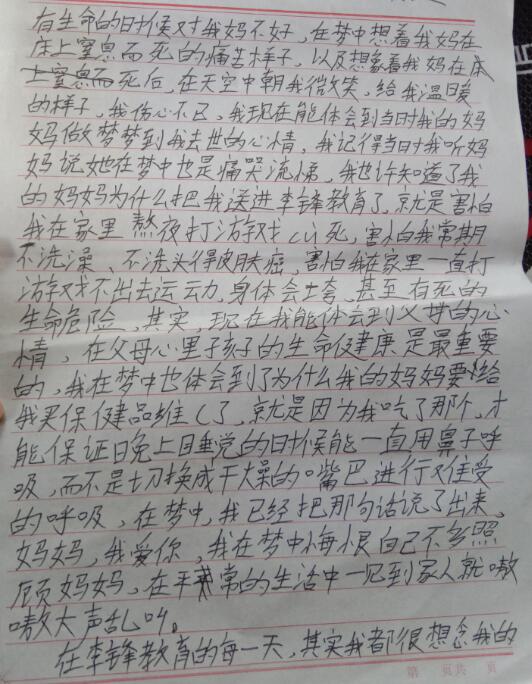 有生命的时候对我妈不好，在梦中想着我妈在
床上窒息而死的痛苦样子，以及想象着我妈在床
上窒息而死后，在天空中朝我微笑，给我温暖
的样子，我伤心不已，我现在能体会到当时我的妈
妈做梦梦到我去世的心情，我记得当时我听妈
妈说她在梦中也是痛哭流悌，我也许知道了我
的妈妈为什么把我送进李锋教育了，就是害怕
我在家里熬夜打游戏cù死，害怕我常期
不洗澡、不洗头得皮肤癌，害怕我在家里一直打
游戏不出去运动，身体会垮，甚至有死的
生命危险，其实，现在我能体会到父母的心
情，在父母心里子孩子的生命健康是最重要
的，我在梦中也体会到了为什么我的妈妈要给
我买保健品维C了，就是因为我吃了那个，才
能保证晚上睡觉的时候能一直用鼻子呼
吸，而不是切换成干燥的嘴巴进行难受
的呼吸，在梦中，我已经把那句话说了出来，
妈妈，我爱你，我在梦中悔恨自己不多照
顾妈妈，在平常的生活中一见到家人就嗷
嗷大声乱叫。
在李锋教育的每一天，其实我都很想念我的
第 页共 页